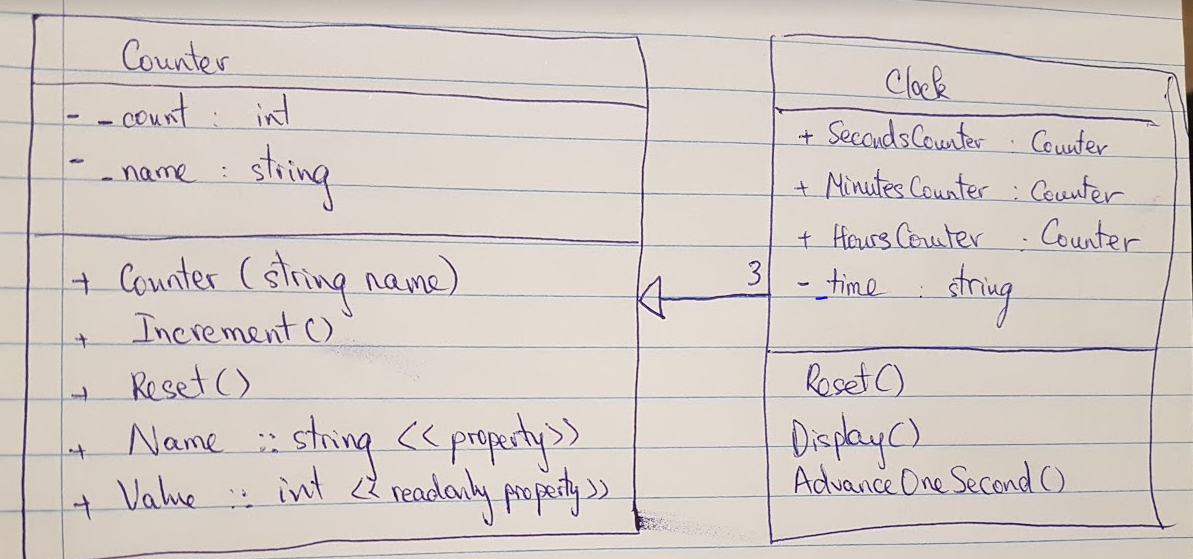 Counter
- _count : int
- _name : string
+ Counter (string name)
+ Increment()
+ Reset()
+ Name :: string <<property>>
+ Value :: int <<readonly property>>
3
Clock
+ SecondsCounter : Counter
+ MinutesCounter : Counter
+ HoursCounter : Counter
- _time : string
Reset()
Display()
AdvanceOneSecond()